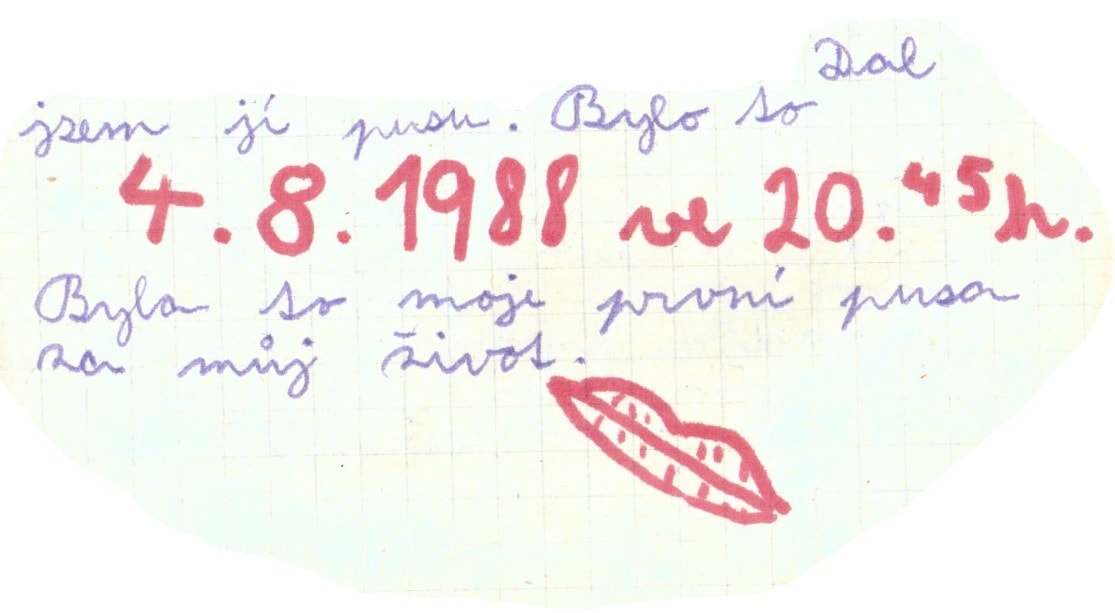 Dal
jsem jí pusu. Bylo to
4.8.1988 ve 20.45h.
Byla to moje první pusa
za můj život.